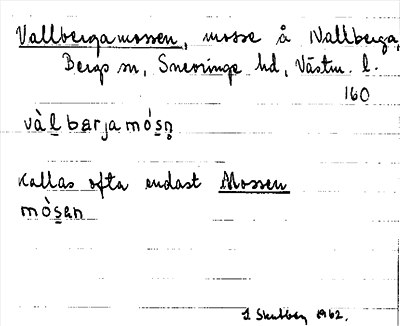 Vallbergamossen, mosse å Vallberga,
Bergs sn, Snevringe hd, Västm. l.
160
vàl bærja mósn̥
Kallas ofta endast Mossen
mòsen
1962.